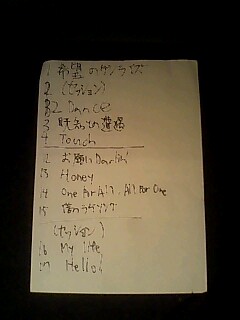 1 希望のサンライズ
2 (セッション)
32 Dance
3 既知との遭遇
4 Touch
12 お願いDarlin'
13 Honey
14 One For All, All For One
15 僕のラブソング
(セッション)
16 My life
17 Hello!